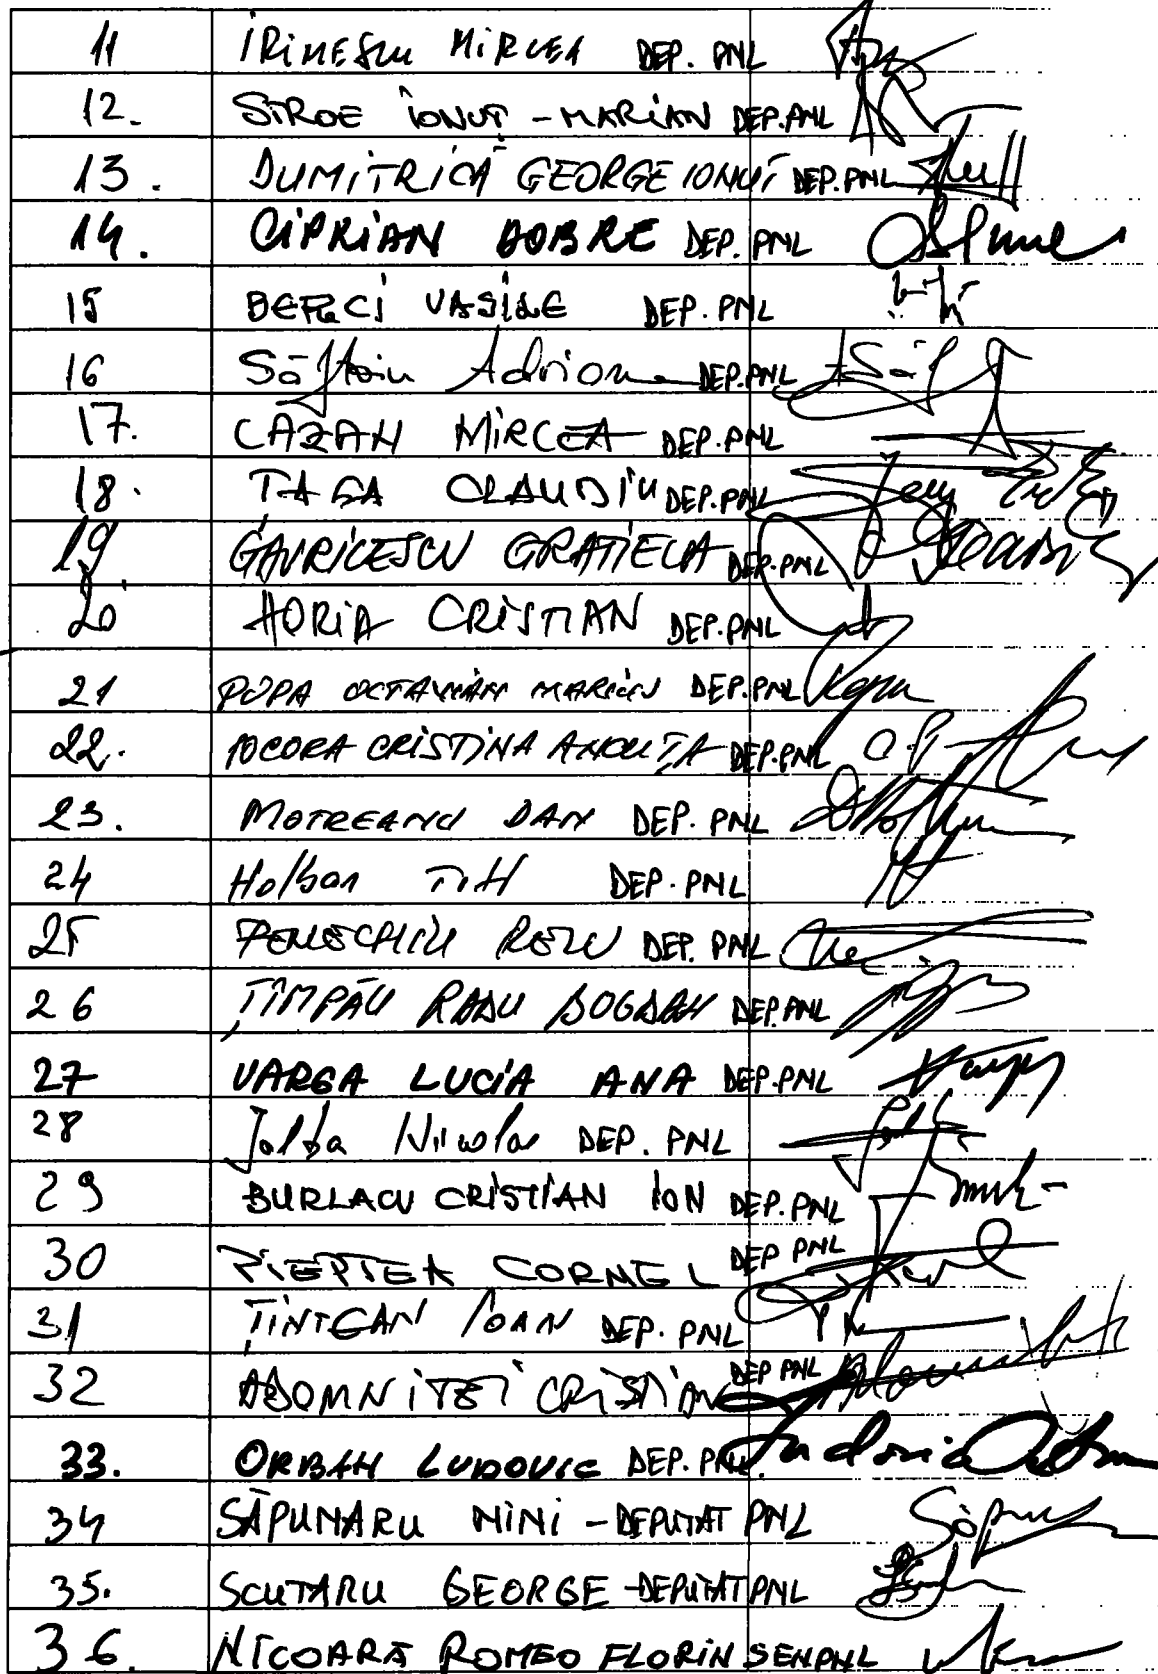 11 IRIMESCU MIRCEA DEP. PNL
12. STROE IONUȚ - MARIAN DEP. PNL
13. DUMITRICĂ GEORGE IONUȚ DEP. PNL
14. CIPRIAN DOBRE DEP. PNL
15 BERCI VASILE DEP. PNL
16 Săftoiu Adriana DEP. PNL
17. CAZAN MIRCEA DEP. PNL
18. TAGA CLAUDIU DEP. PNL
19 GAVRILESCU GRATIELA DEP. PNL
20 HORIA CRISTIAN DEP. PNL
21 POPA OCTAVIAN MARIUS DEP. PNL
22. POCORA CRISTINA ANCUȚA DEP. PNL
23. MOTREANU DAN DEP. PNL
24 Holban Titi DEP. PNL
25 RELU DEP. PNL
26 ȚÎMPĂU RADU BOGDAN DEP. PNL
27 VARGA LUCIA ANA DEP. PNL
28 Jolța Nicolae DEP. PNL
29 BURLACU CRISTIAN ION DEP. PNL
30 PIEPTEA CORNEL DEP PNL
31 ȚINTEAN IOAN DEP. PNL
32 ADOMNIȚEI CRISTIAN DEP PNL
33. ORBAN LUDOVIC DEP. PNL. Ludovic Orban
34 SĂPUNARU NINI - DEPUTAT PNL
35. SCUTARU GEORGE - DEPUTAT PNL
36. NICOARĂ ROMEO FLORIN SEN PNL